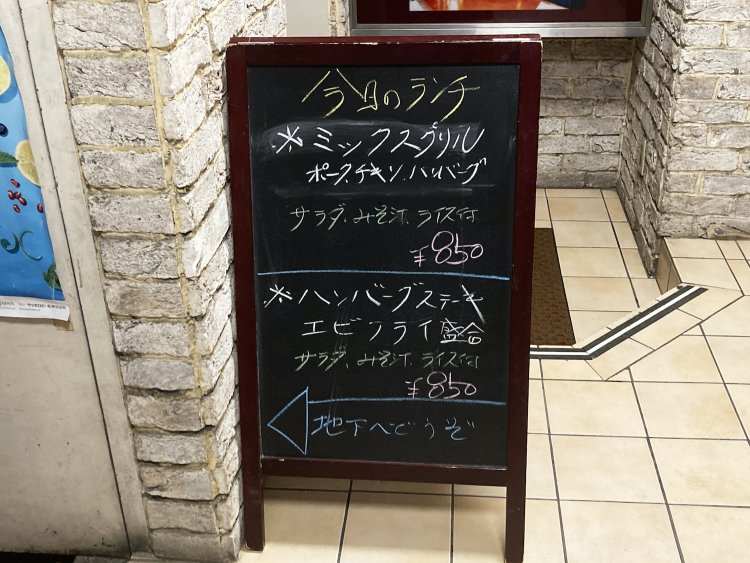 今日のランチ
※ミックスグリル
ポーク、チキン、ハンバーグ
サラダ、みそ汁、ライス付
¥850
※ハンバーグステーキ
エビフライ盛合
サラダ、みそ汁、ライス付
¥850
地下へどうぞ